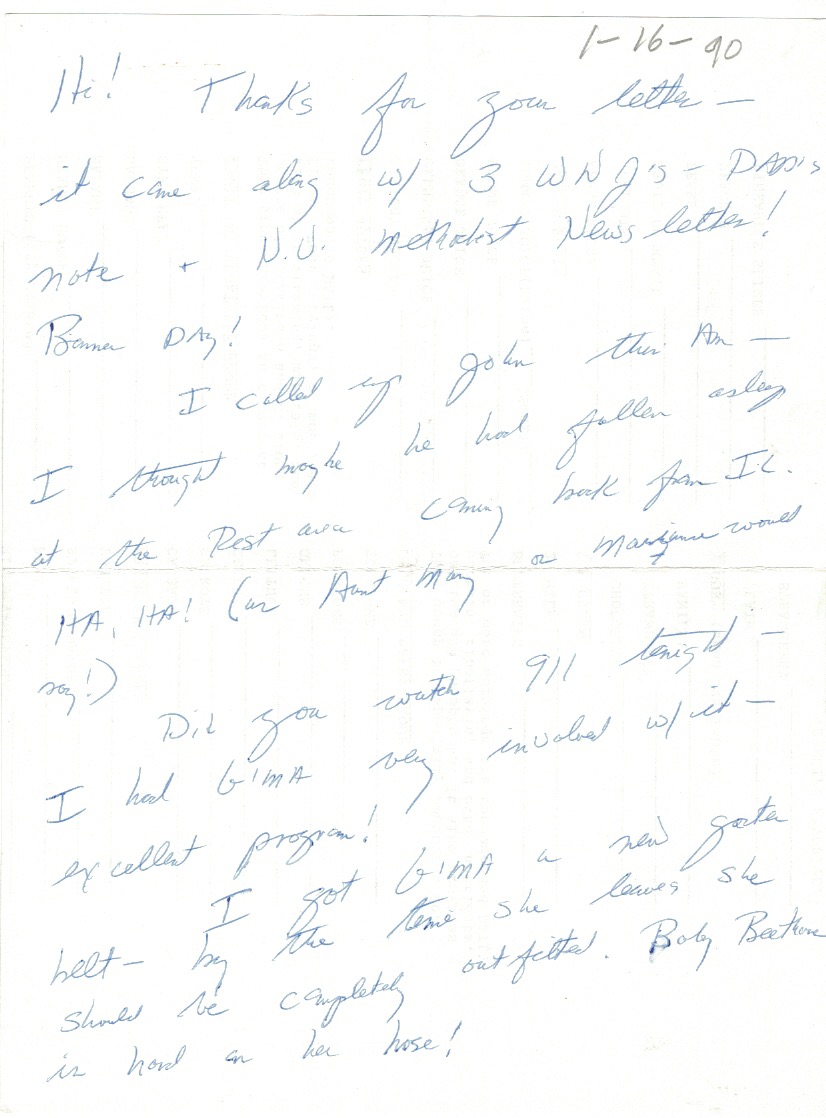 1-16-90
Hi! Thanks for your letter —
it came along w/ 3 WNJ's — DAD's
note + N.U. Methodist Newsletter!
Banner DAy!
I called up John this Am —
I thought maybe he had fallen asleep
at the Rest area coming back from IL.
HA, HA! (as Aunt Mary or would
say!)
Did you watch 911 tonight —
I had G'MA very involved w/ it —
excellent program!
I got G'MA a new garter
belt — by the time she leaves she
should be completely outfitted. Baby Beethoven
is hard on her hose!